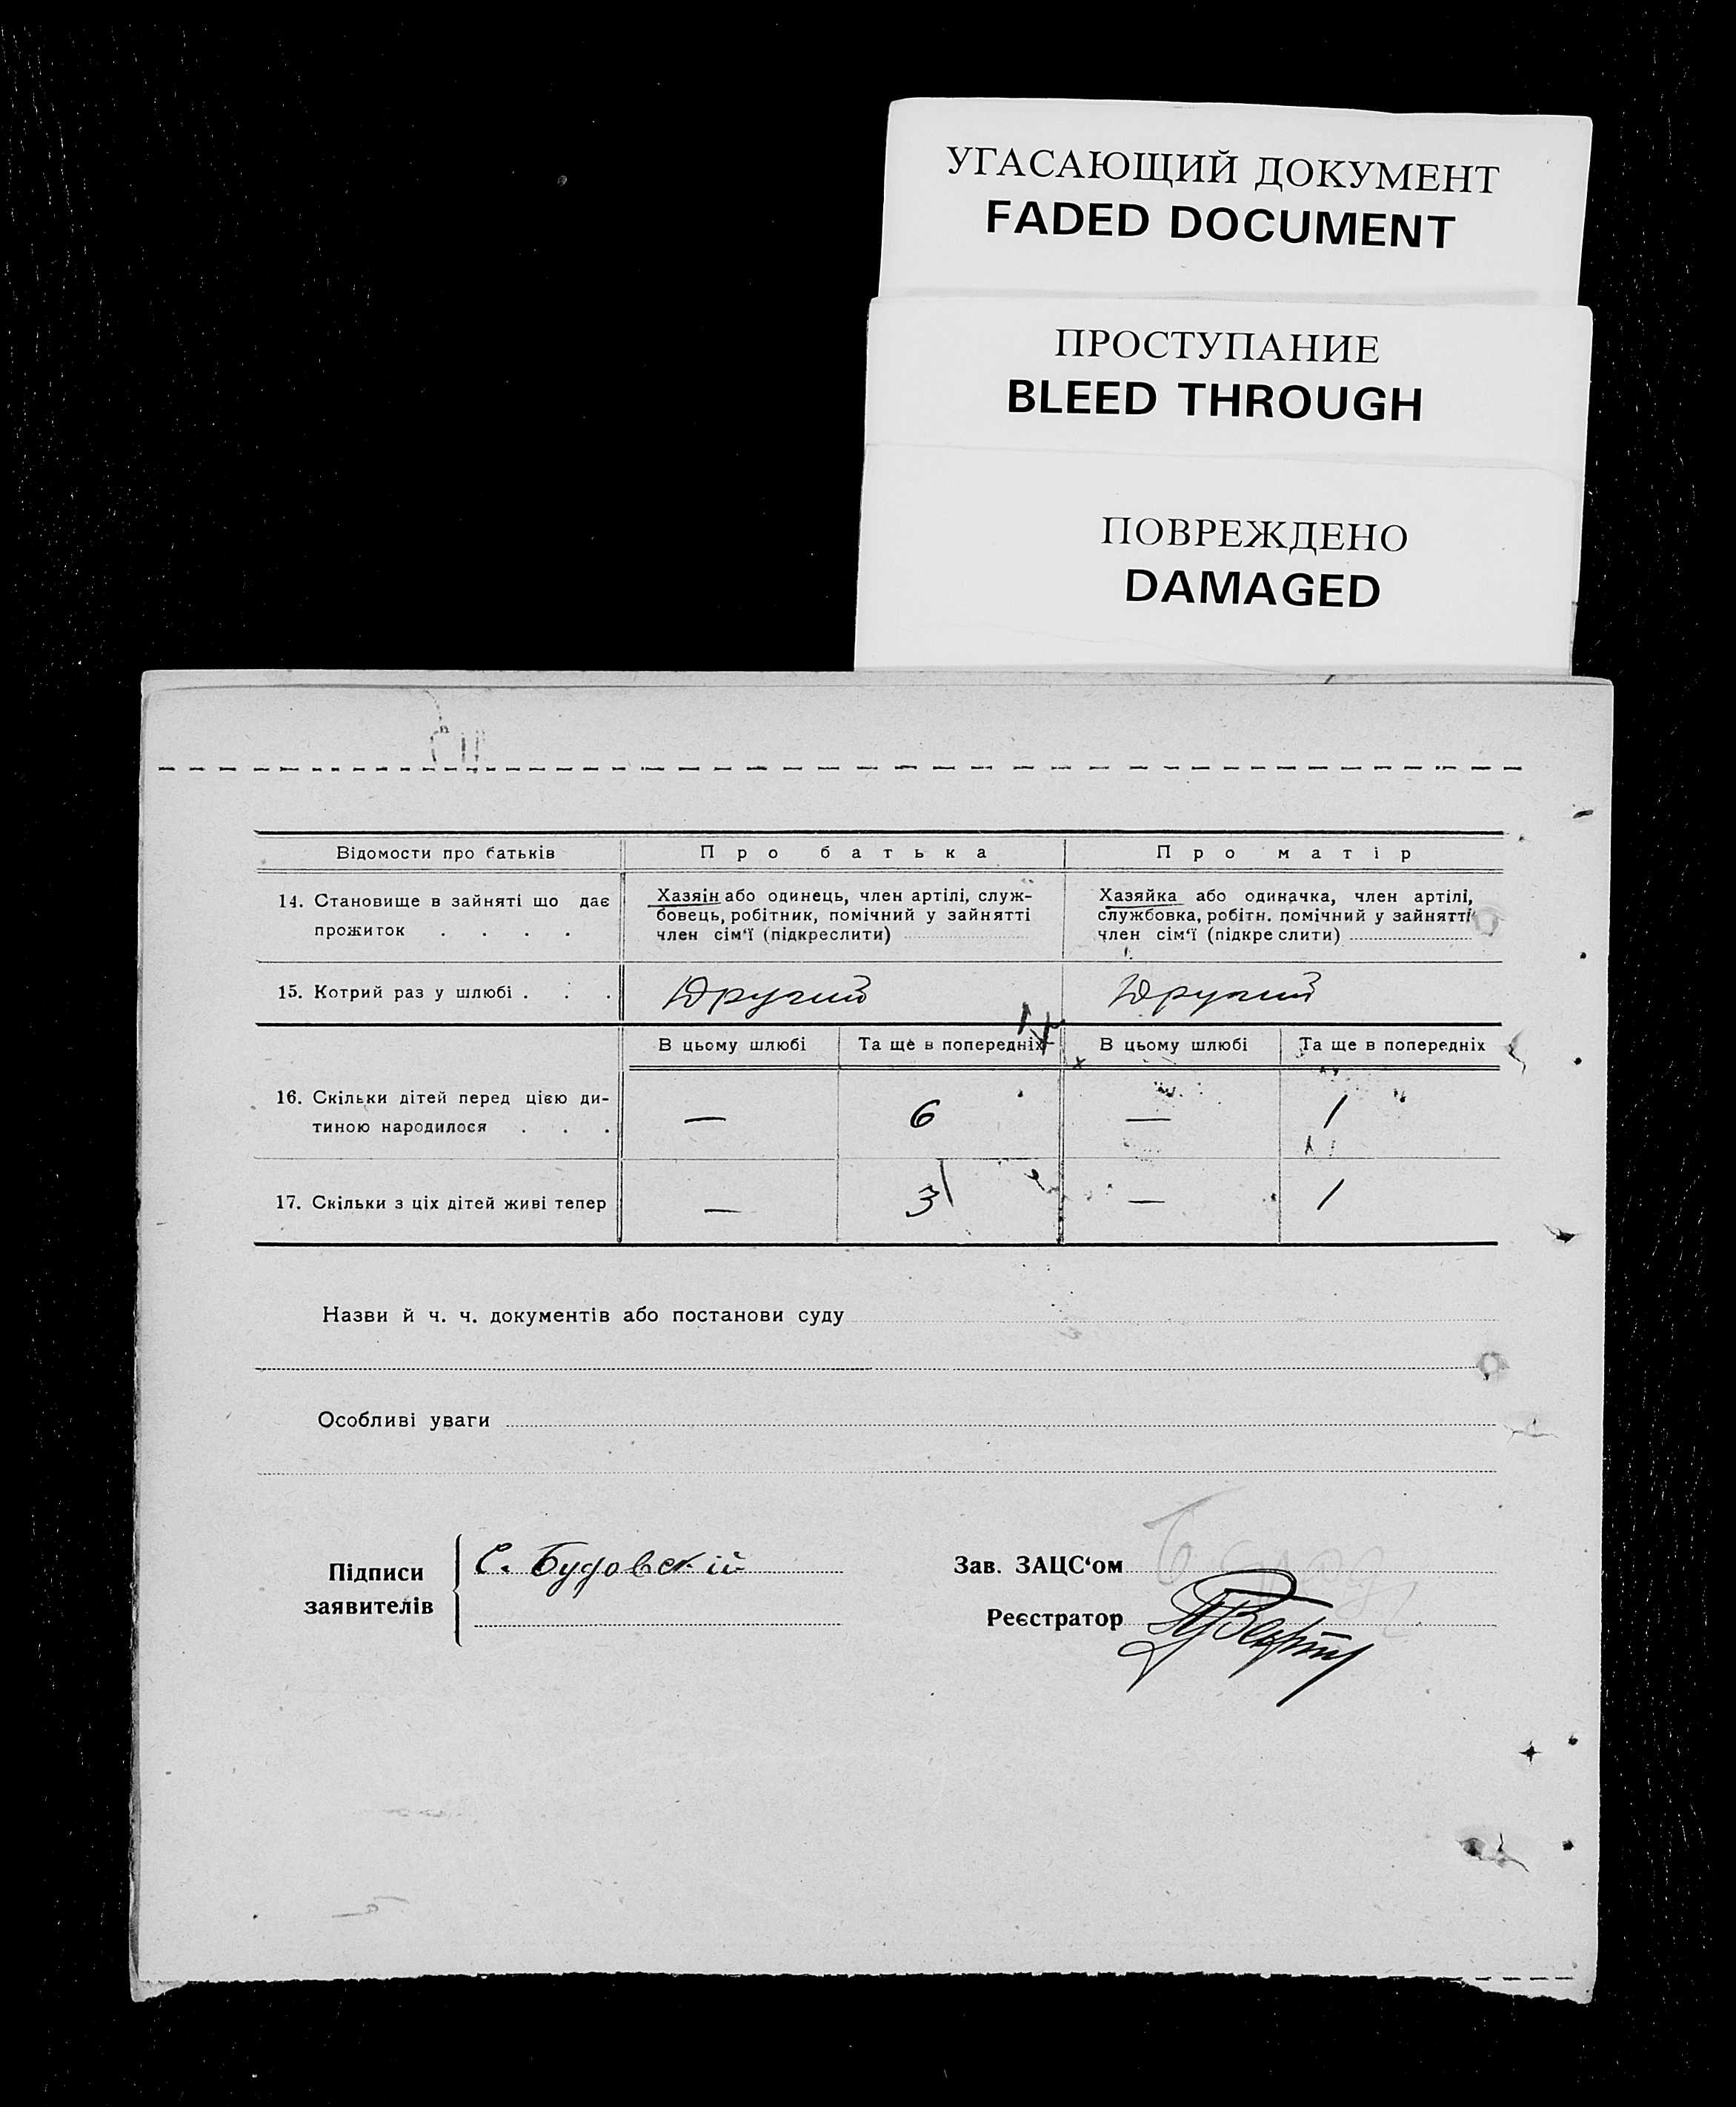 УГАСАЮЩИЙ ДОКУМЕНТ
FADED DOCUMENT
ПРОСТУПАНИЕ
BLEED THROUGH
ПОВРЕЖДЕНО
DAMAGED
Відомости про батьків Про батька Про матір
14. Становище в зайняті що дає
прожиток . . . .
Хазяін або одинець, член артілі, служ-
бовець, робітник, помічний у зайнятті
член сім‘ї (підкреслити)
Хазяйка або одиначка, член артілі,
службовка, робітн. помічний у зайнятті
член сім‘ї (підкреслити)
15. Котрий раз у шлюбі . . . Другий Другий
В цьому шлюбі Та ще в попередніх В цьому шлюбі Та ще в попередніх
16. Скільки дітей перед цією ди-
тиною народилося . . . — 6 — 1
17. Скільки з ціх дітей живі тепер — 3 — 1
Назви й ч. ч. документів або постанови суду
Особливі уваги
Підписи
заявителів
С. Будовскій
Зав. ЗАЦС‘ом
Реєстратор